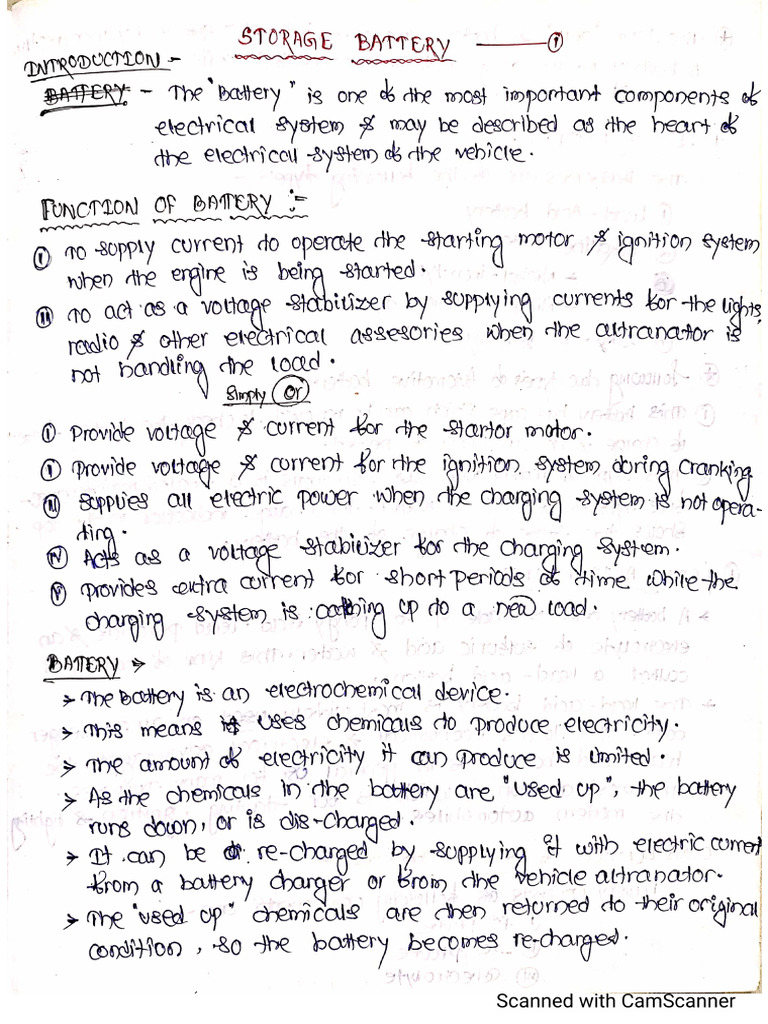 STORAGE BATTERY ——— ①
INTRODUCTION :-
BATTERY :- The "Battery" is one of the most important components of
electrical system & may be described as the heart of
the electrical system of the vehicle.
FUNCTION OF BATTERY :-
① To supply current to operate the starting motor & ignition system
when the engine is being started.
⑪ To act as a voltage stabilizer by supplying currents for the lights,
radio & other electrical assesories when the altranator is
not handling the load.
Simply Or
① Provide voltage & current for the startor motor.
⑪ Provide voltage & current for the ignition system during cranking
⑪⑪ supplies all electric power when the charging system is not opera-
ting.
IV Acts as a voltage stabilizer for the charging system.
V provides extra current for short periods of time while the
charging system is catching up to a new load.
BATTERY →
→ The Battery is an electrochemical device.
→ This means it uses chemicals to produce electricity.
→ The amount of electricity it can produce is limited.
→ As the chemicals in the battery are "used up", the battery
runs down, or is dis-charged.
→ It can be re-charged by supplying it with electric current
from a battery charger or from the vehicle altranator.
→ The "used up" chemicals are then returned to their original
condition, so the battery becomes re-charged.
Scanned with CamScanner